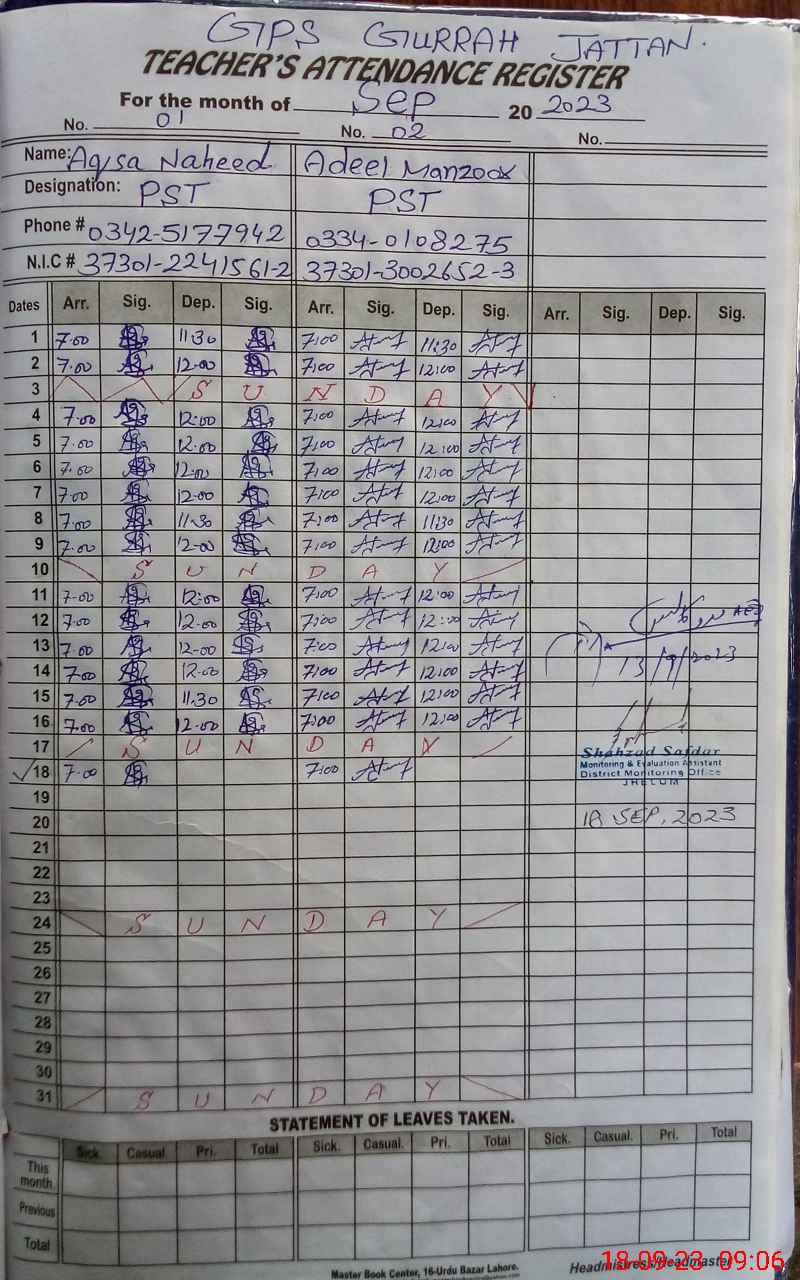 GPS GURRAH JATTAN.
TEACHER'S ATTENDANCE REGISTER
For the month of Sep 20 2023
No. 01 No. 02 No.
Name: Aqsa Naheed Adeel Manzoor
Designation: PST PST
Phone # 0342-5177942 0334-0108275
N.I.C # 37301-2241561-2 37301-3002652-3
Dates Arr. Sig. Dep. Sig. Arr. Sig. Dep. Sig. Arr. Sig. Dep. Sig.
1 7.00 11.30 7:00 11:30
2 7.00 12.00 7:00 12:00
3 S U N D A Y
4 7.00 12:00 7:00 12:00
5 7.00 12.00 7:00 12:00
6 7.00 12.00 7:00 12:00
7 7.00 12.00 7:00 12:00
8 7.00 11.30 7:00 11:30
9 7.00 12.00 7:00 12:00
10 S U N D A Y
11 7.00 12:00 7:00 12:00
12 7.00 12.00 7:00 12:00
13 7.00 12.00 7:00 12:00 13/9/2023
14 7.00 12.00 7:00 12:00
15 7.00 11.30 7:00 12:00
16 7.00 12.00 7:00 12:00
17 S U N D A Y
Shahzad Safdar
Monitoring & Evaluation Assistant
District Monitoring Office
JHELUM
✓18 7.00 7:00
19
20 18 SEP, 2023
21
22
23
24 S U N D A Y
25
26
27
28
29
30
31 S U N D A Y
STATEMENT OF LEAVES TAKEN.
Sick. Casual. Pri. Total Sick. Casual. Pri. Total Sick. Casual. Pri. Total
This month
Previous
Total
Master Book Center, 16-Urdu Bazar Lahore.
Headmistress/Headmaster
18-09-23 09:06